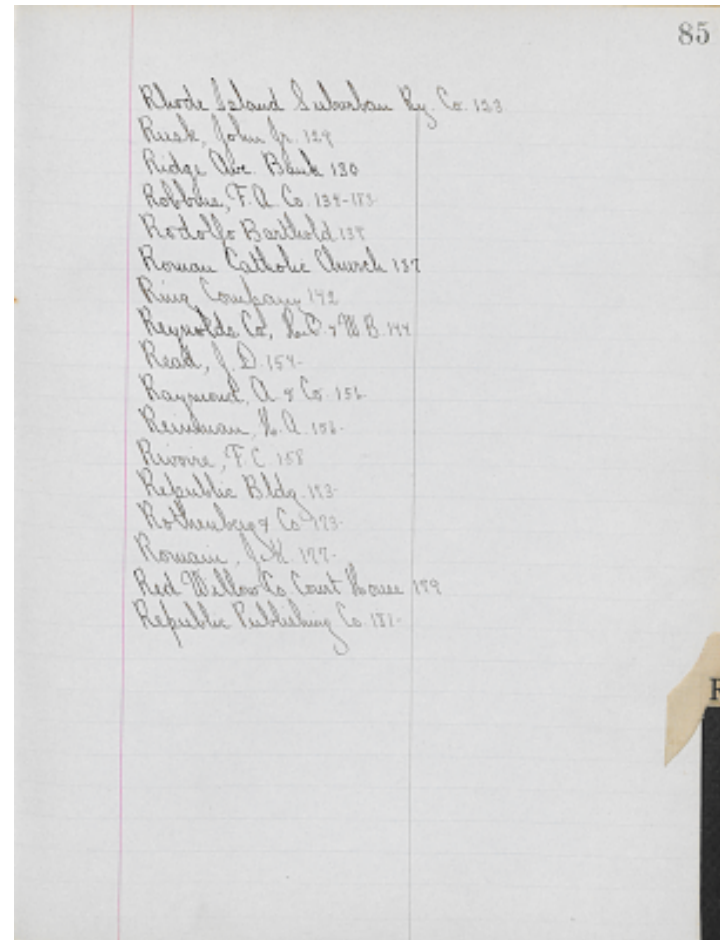 85
Rhode Island Suburban Ry. Co. 123
Rusk, John Jr. 129
Ridge Ave. Bank 130
Robbins, F.A. Co.
Rodolfo Barthold
Roman Catholic Church 137
Ring Company 142
Reynolds Co, & W B. 144
Read, J. D. 154-
Raymond, A & Co. 156
Reinman, H. A. 156-
Rivoire, F. C. 158
Republic Bldg.
Rothenberg & Co
Romain, J. K. 177-
Red Willow Co Court House 179
Republic Publishing Co. 181-
R